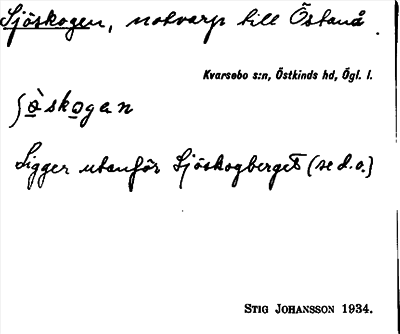 Sjöskogen, notvarp till Östanå.
Kvarsebo s:n, Östkinds hd, Ögl. l.
ʃø̀skogan
Ligger utanför Sjöskogberget (se d.o.)
STIG JOHANSSON 1934.